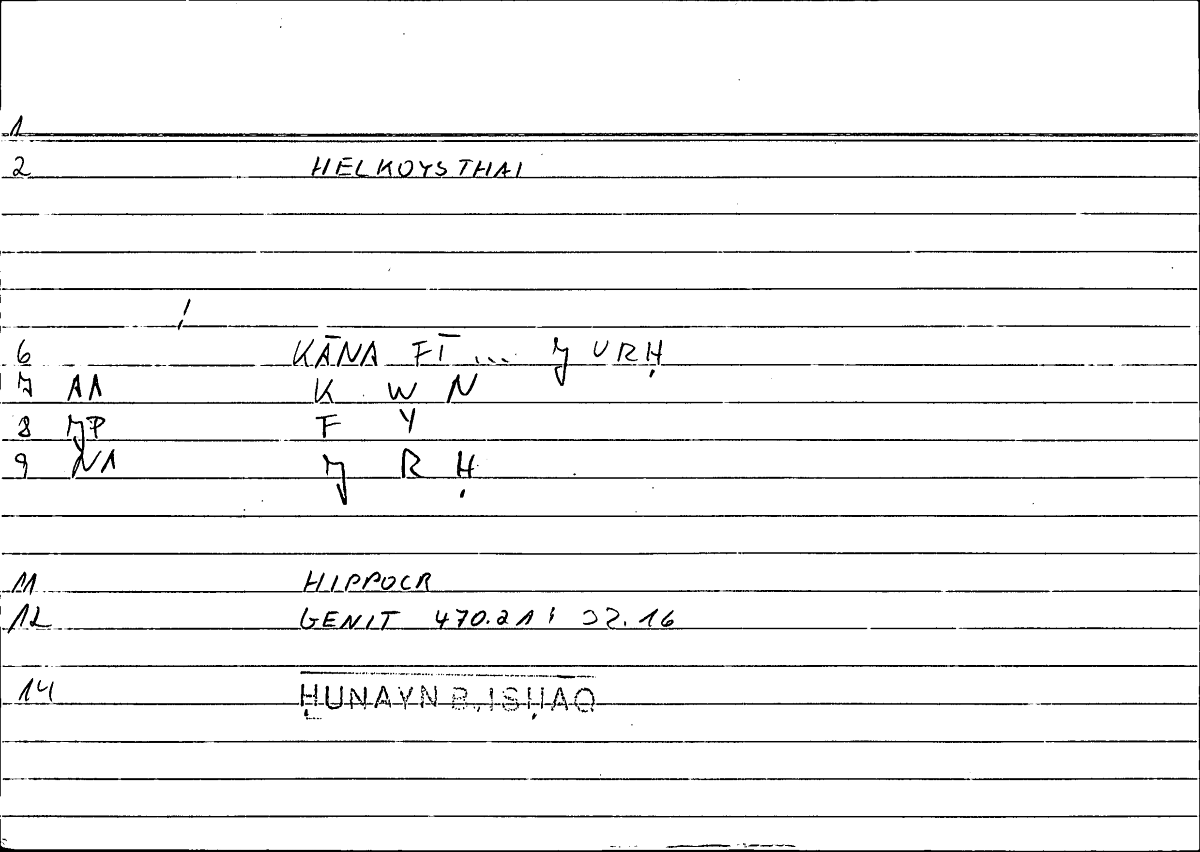 1
2 HELKOYSTHAI
!
6 KĀNA FĪ ... J URḤ
7 AA K W N
8 JP F Y
9 NA J R Ḥ
11 HIPPOCR
12 GENIT 470.21; 32.16
14 ḤUNAYN B. ISḤAQ